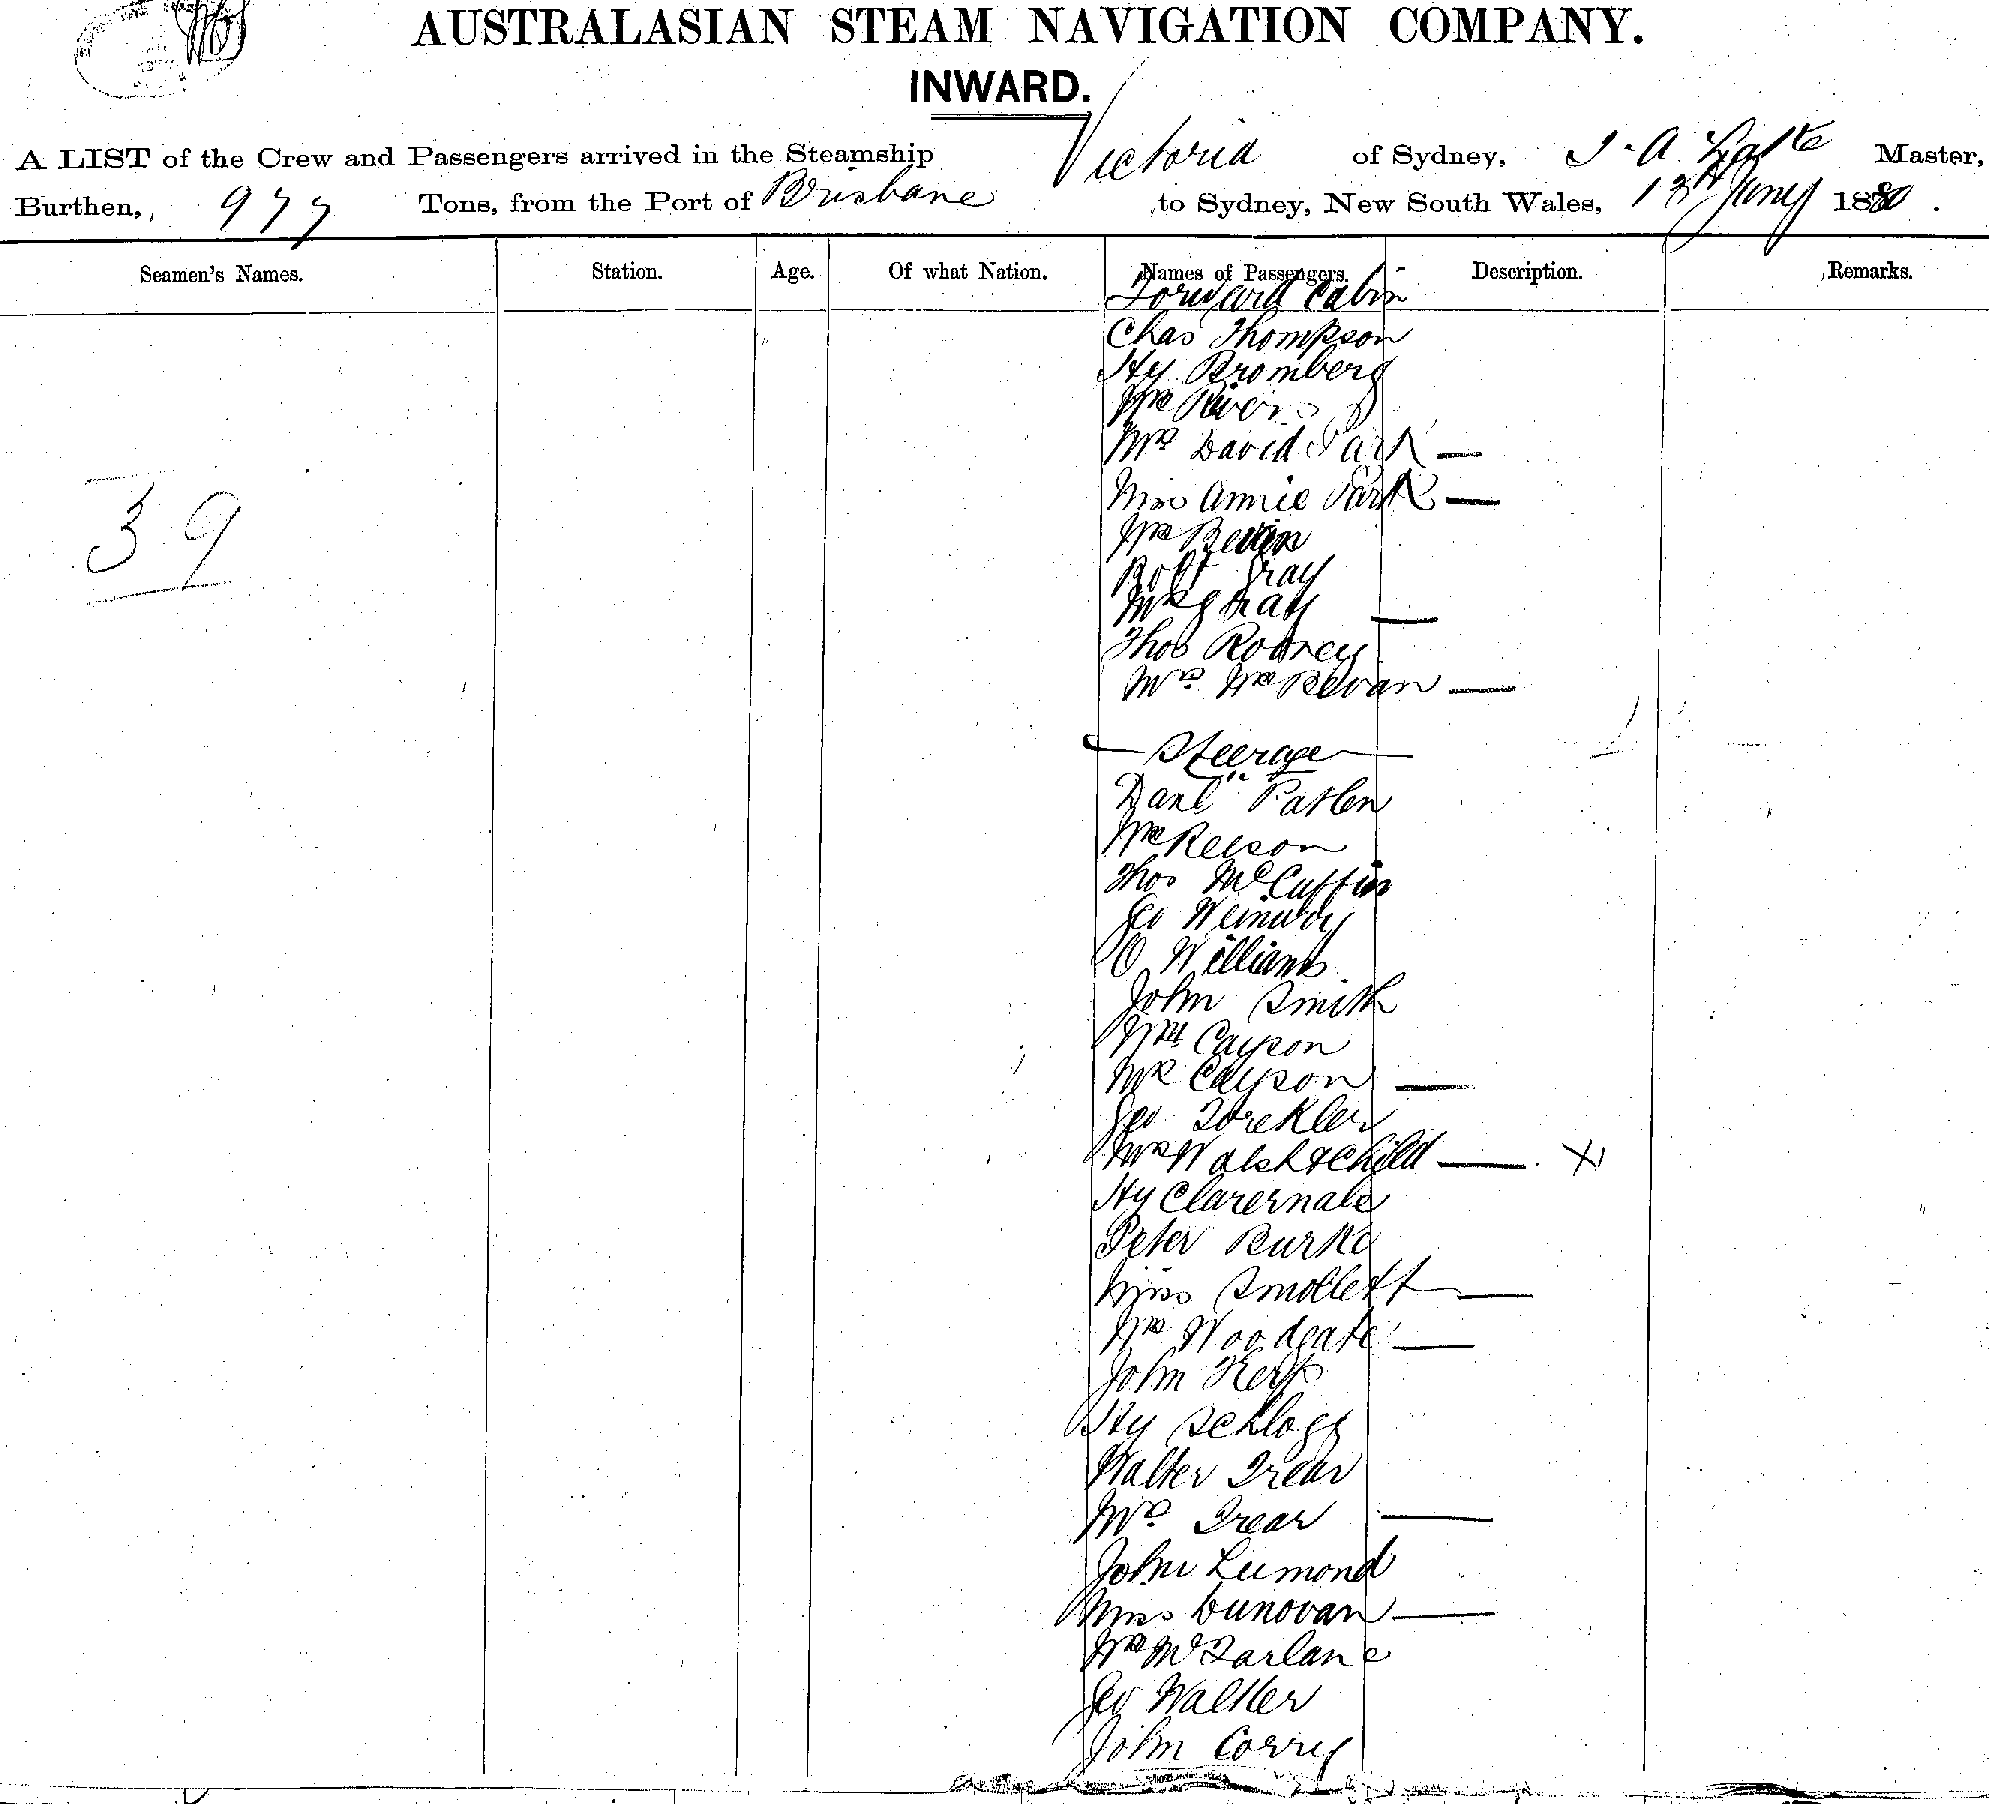 AUSTRALASIAN STEAM NAVIGATION COMPANY.
INWARD.
A LIST of the Crew and Passengers arrived in the Steamship Victoria of Sydney, J. A. Master,
Burthen, 977 Tons, from the Port of Brisbane to Sydney, New South Wales, 13th Juny 1880.
Seamen's Names. Station. Age. Of what Nation. Names of Passengers. Description. Remarks.
Forward Cabin
Chas Thompson
Hy Bromberg
Wm Rivers
Mrs David Park —
Miss Annie Park —
Wm Bevan
Robt Gray
Mrs Gray —
Thos Rodney
Mrs Wm Bevan —
39
Steerage
Danl Patten
Wm Reeson
Thos McCuffin
Geo Weinwoy
O Williams
John Smith
Wm Cayson
Mrs Cayson —
Geo Forekler
Mrs Walsh & Child — X
Hy Clarernale
Peter Burke
Miss Smollett —
Wm Woodgate —
John
Hy Schlogg
Walter Frear
Mrs Frear —
John Lumond
Miss Dunovan —
Wm McFarlane
Geo Walker
John Corry